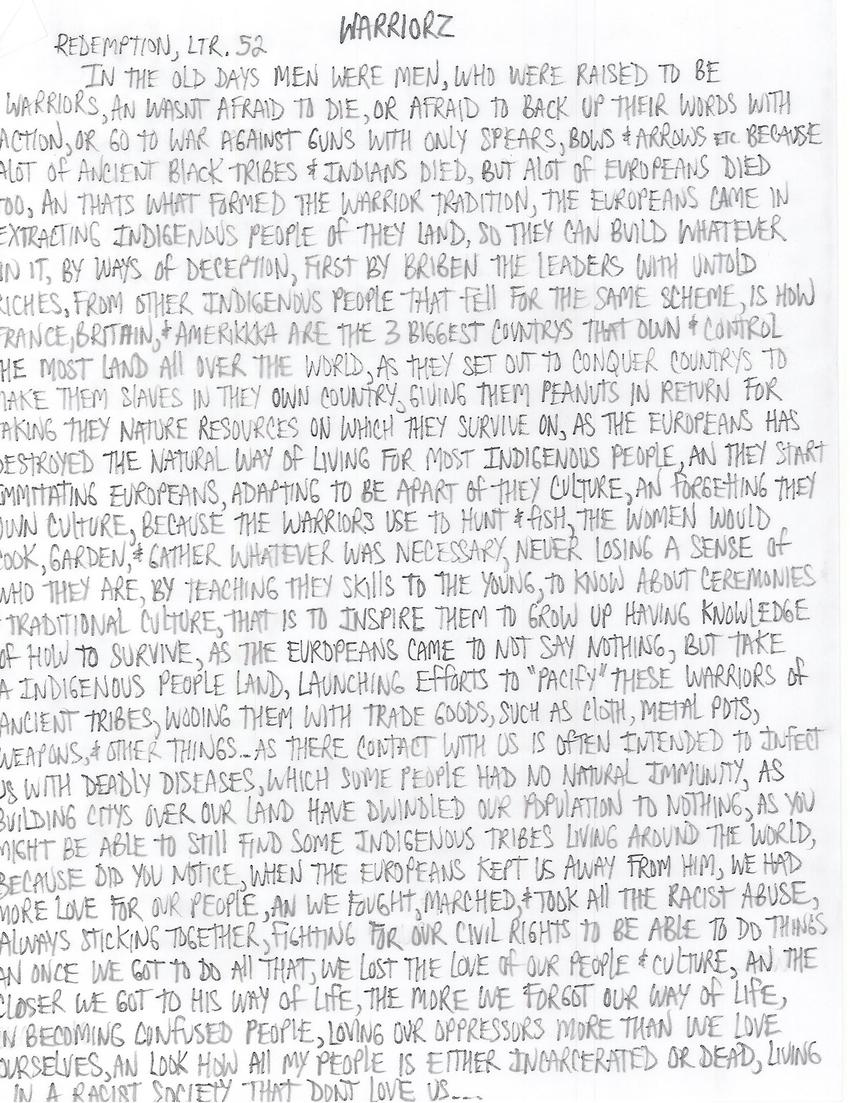 WARRIORZ
REDEMPTION, LTR. 52
IN THE OLD DAYS MEN WERE MEN, WHO WERE RAISED TO BE
WARRIORS, AN WASNT AFRAID TO DIE, OR AFRAID TO BACK UP THEIR WORDS WITH
ACTION, OR GO TO WAR AGAINST GUNS WITH ONLY SPEARS, BOWS & ARROWS ETC. BECAUSE
ALOT OF ANCIENT BLACK TRIBES & INDIANS DIED, BUT ALOT OF EUROPEANS DIED
TOO, AN THATS WHAT FORMED THE WARRIOR TRADITION, THE EUROPEANS CAME IN
EXTRACTING INDIGENOUS PEOPLE OF THEY LAND, SO THEY CAN BUILD WHATEVER
IN IT, BY WAYS OF DECEPTION, FIRST BY BRIBEN THE LEADERS WITH UNTOLD
RICHES, FROM OTHER INDIGENOUS PEOPLE THAT FELL FOR THE SAME SCHEME, IS HOW
FRANCE, BRITAIN, & AMERIKKKA ARE THE 3 BIGGEST COUNTRYS THAT OWN & CONTROL
HE MOST LAND ALL OVER THE WORLD, AS THEY SET OUT TO CONQUER COUNTRYS TO
MAKE THEM SLAVES IN THEY OWN COUNTRY, GIVING THEM PEANUTS IN RETURN FOR
AKING THEY NATURE RESOURCES ON WHICH THEY SURVIVE ON, AS THE EUROPEANS HAS
DESTROYED THE NATURAL WAY OF LIVING FOR MOST INDIGENOUS PEOPLE, AN THEY START
IMMITATING EUROPEANS, ADAPTING TO BE APART OF THEY CULTURE, AN FORGETTING THEY
OWN CULTURE, BECAUSE THE WARRIORS USE TO HUNT & FISH, THE WOMEN WOULD
COOK, GARDEN, & GATHER WHATEVER WAS NECESSARY, NEVER LOSING A SENSE OF
WHO THEY ARE, BY TEACHING THEY SKILLS TO THE YOUNG, TO KNOW ABOUT CEREMONIES
TRADITIONAL CULTURE, THAT IS TO INSPIRE THEM TO GROW UP HAVING KNOWLEDGE
OF HOW TO SURVIVE, AS THE EUROPEANS CAME TO NOT SAY NOTHING, BUT TAKE
A INDIGENOUS PEOPLE LAND, LAUNCHING EFFORTS TO "PACIFY" THESE WARRIORS OF
ANCIENT TRIBES, WODING THEM WITH TRADE GOODS, SUCH AS CLOTH, METAL POTS,
WEAPONS, & OTHER THINGS... AS THERE CONTACT WITH US IS OFTEN INTENDED TO INFECT
US WITH DEADLY DISEASES, WHICH SOME PEOPLE HAD NO NATURAL IMMUNITY, AS
BUILDING CITYS OVER OUR LAND HAVE DWINDLED OUR POPULATION TO NOTHING, AS YOU
MIGHT BE ABLE TO STILL FIND SOME INDIGENOUS TRIBES LIVING AROUND THE WORLD,
BECAUSE DID YOU NOTICE, WHEN THE EUROPEANS KEPT US AWAY FROM HIM, WE HAD
MORE LOVE FOR OUR PEOPLE, AN WE FOUGHT, MARCHED, & TOOK ALL THE RACIST ABUSE,
ALWAYS STICKING TOGETHER, FIGHTING FOR OUR CIVIL RIGHTS TO BE ABLE TO DO THINGS
AN ONCE WE GOT TO DO ALL THAT, WE LOST THE LOVE OF OUR PEOPLE & CULTURE, AN THE
CLOSER WE GOT TO HIS WAY OF LIFE, THE MORE WE FORGOT OUR WAY OF LIFE,
IN BECOMING CONFUSED PEOPLE, LOVING OUR OPPRESSORS MORE THAN WE LOVE
OURSELVES, AN LOOK HOW ALL MY PEOPLE IS EITHER INCARCERATED OR DEAD, LIVING
IN A RACIST SOCIETY THAT DONT LOVE US....